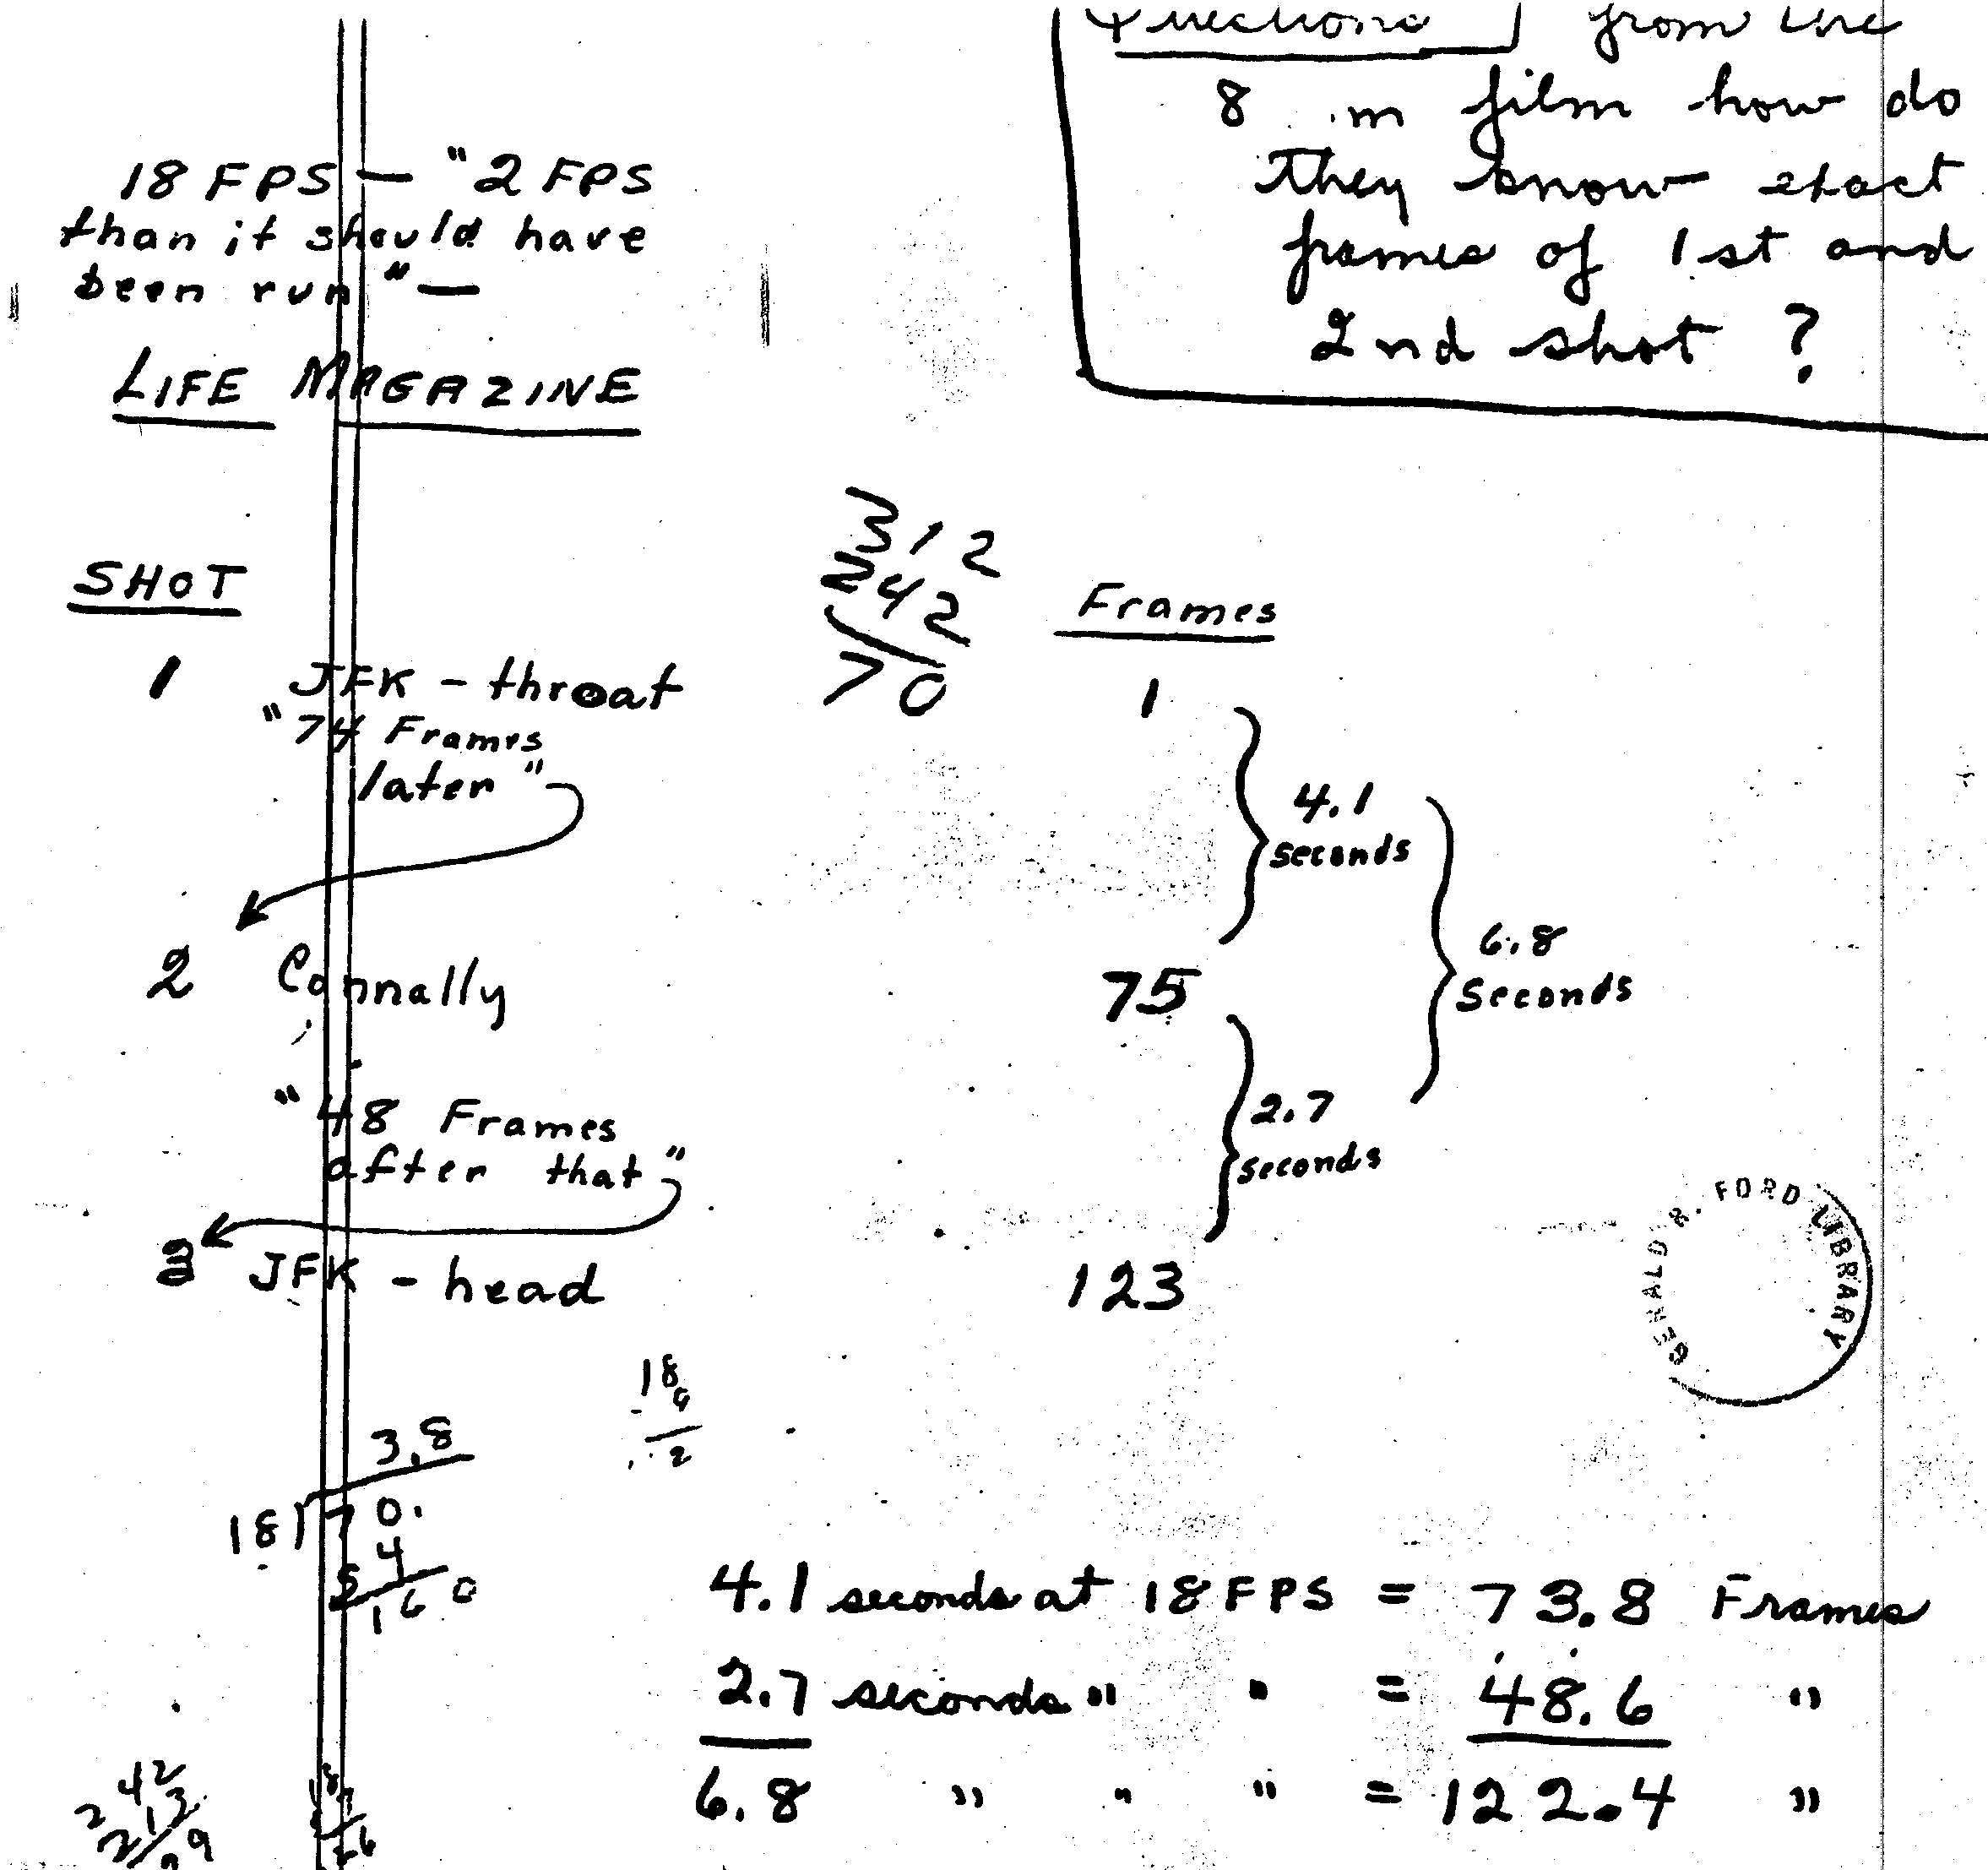 Questions from the
8 m film how do
they know exact
frames of 1st and
2nd shot ?
18 FPS — "2 FPS
than it should have
been run" —
LIFE MAGAZINE
312
242
70
SHOT
Frames
1 JFK - throat 1
"74 Frames
later"
4.1
seconds
2 Connally 75
6.8
Seconds
"48 Frames
after that"
2.7
seconds
3 JFK - head 123
GERALD R. FORD LIBRARY
18
2
3.8
18)70.
54
160
4.1 seconds at 18 FPS = 73.8 Frames
2.7 seconds " " = 48.6 "
6.8 " " " = 122.4 "
242
213